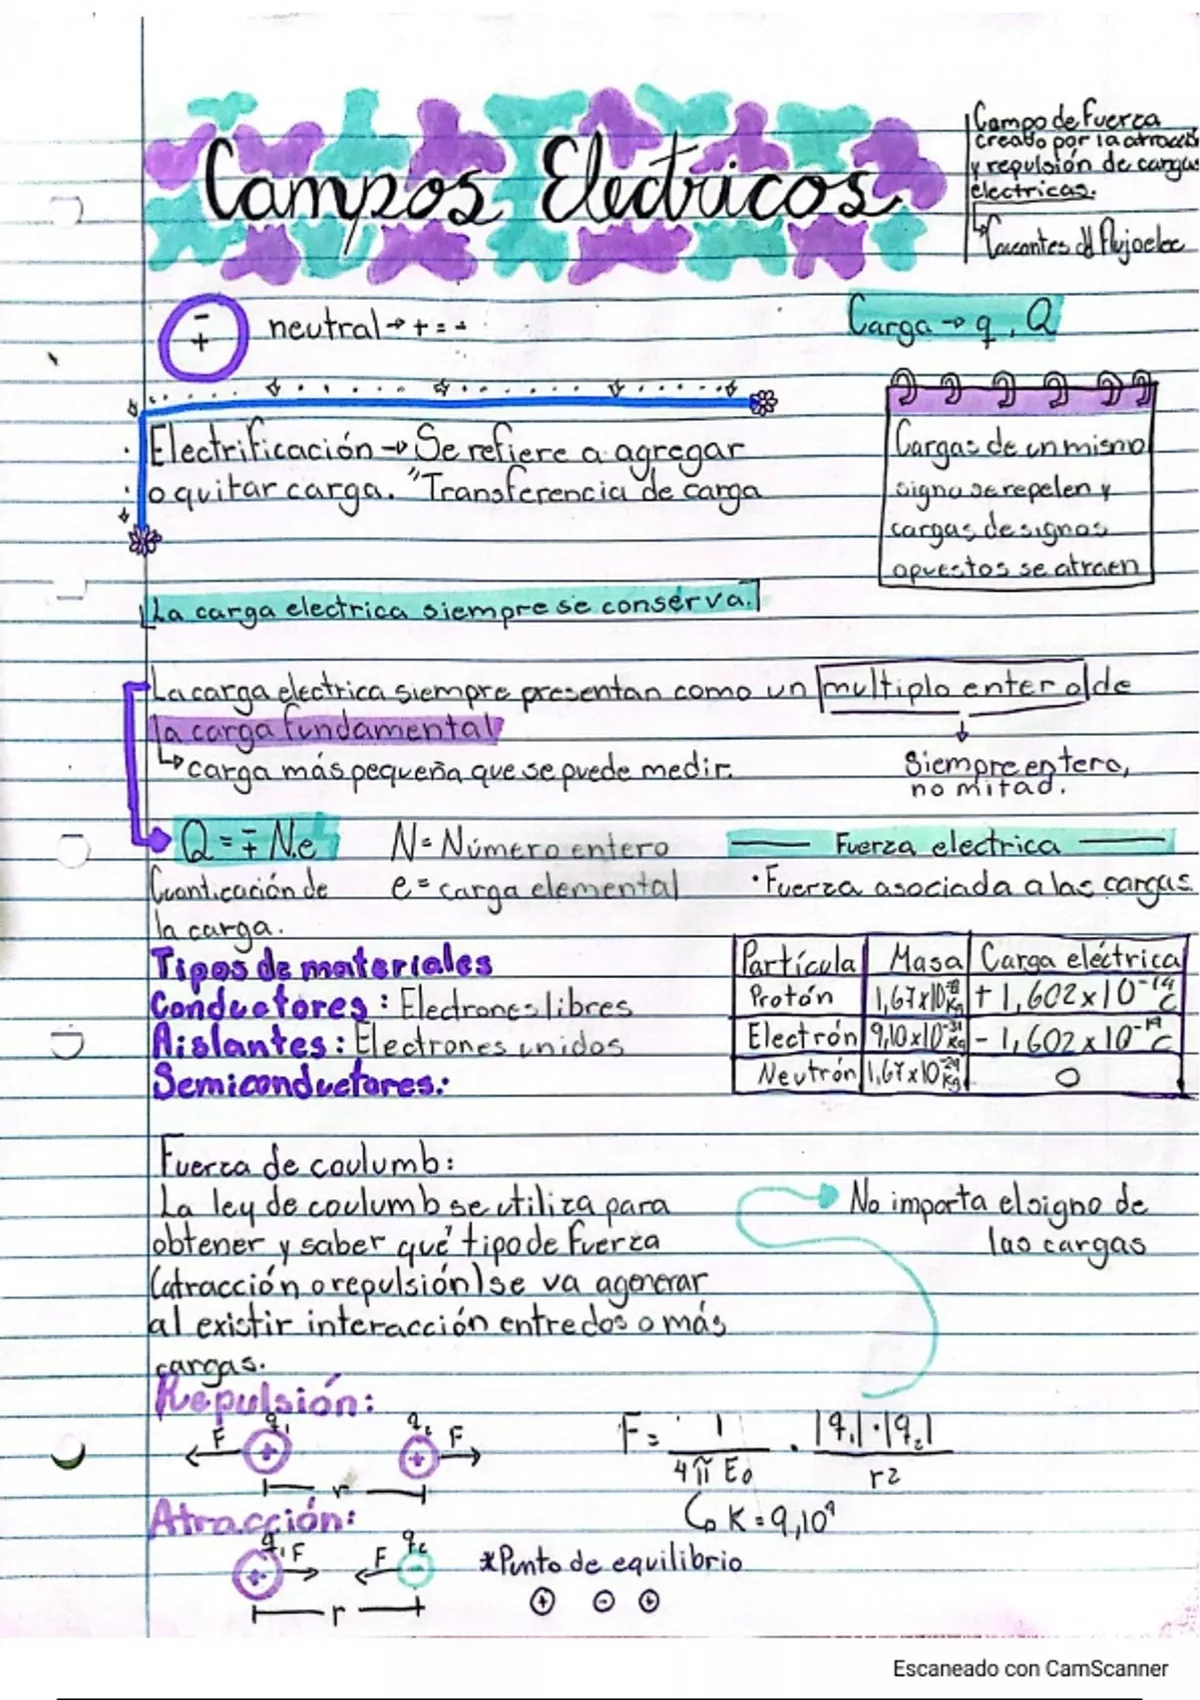 Campos Electricos
Campo de Fuerza
creado por la atracció
y repulsión de cargas
electricas.
neutral → + = -
Carga → q, Q
Electrificación → Se refiere a agregar
o quitar carga. "Transferencia de carga
Cargas de un mismo
signo se repelen y
cargas de signos
opuestos se atraen
La carga electrica siempre se conserva.
La carga electrica siempre presentan como un multiplo entero de
la carga fundamental
↳ carga más pequeña que se puede medir.
Siempre entero,
no mitad.
Q = ∓ N.e
N = Número entero
e = carga elemental
Cuanticación de
la carga.
Fuerza electrica
· Fuerza asociada a las cargas
Tipos de materiales
Conductores: Electrones libres
Aislantes: Electrones unidos
Semiconductores:
Partícula Masa Carga eléctrica
Protón 1,67x10 Kg + 1,602x10⁻¹⁹ C
Electrón 9,10x10⁻³¹ Kg - 1,602x10⁻¹⁹ C
Neutrón 1,67x10 Kg 0
Fuerza de coulumb:
La ley de coulumb se utiliza para
obtener y saber qué tipo de Fuerza
(atracción o repulsión) se va a generar
al existir interacción entre dos o más
cargas.
No importa el signo de
las cargas
Repulsión:
F q₁ + q₂ + F
r
F = 1 / 4π E₀ · |q₁|·|q₂| / r2
↳ K = 9,10⁹
Atracción:
q₁ + F F q₂ -
r
*Punto de equilibrio
+ - +
Escaneado con CamScanner